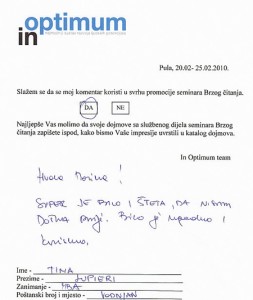 in optimum
Pula, 20.02- 25.02.2010.
Slažem se da se moj komentar koristi u svrhu promocije seminara Brzog čitanja.
DA NE
Najljepše Vas molimo da svoje dojmove sa službenog dijela seminara Brzog
čitanja zapišete ispod, kako bismo Vaše impresije uvrstili u katalog dojmova.
In Optimum team
Hvala
SUPER JE BILO I ŠTETA, DA NISAM
DOŠLA PRIJE. Bilo je I
korisno.
Ime - TINA
Prezime -
Zanimanje - MBA
Poštanski broj i mjesto - VODNJAN